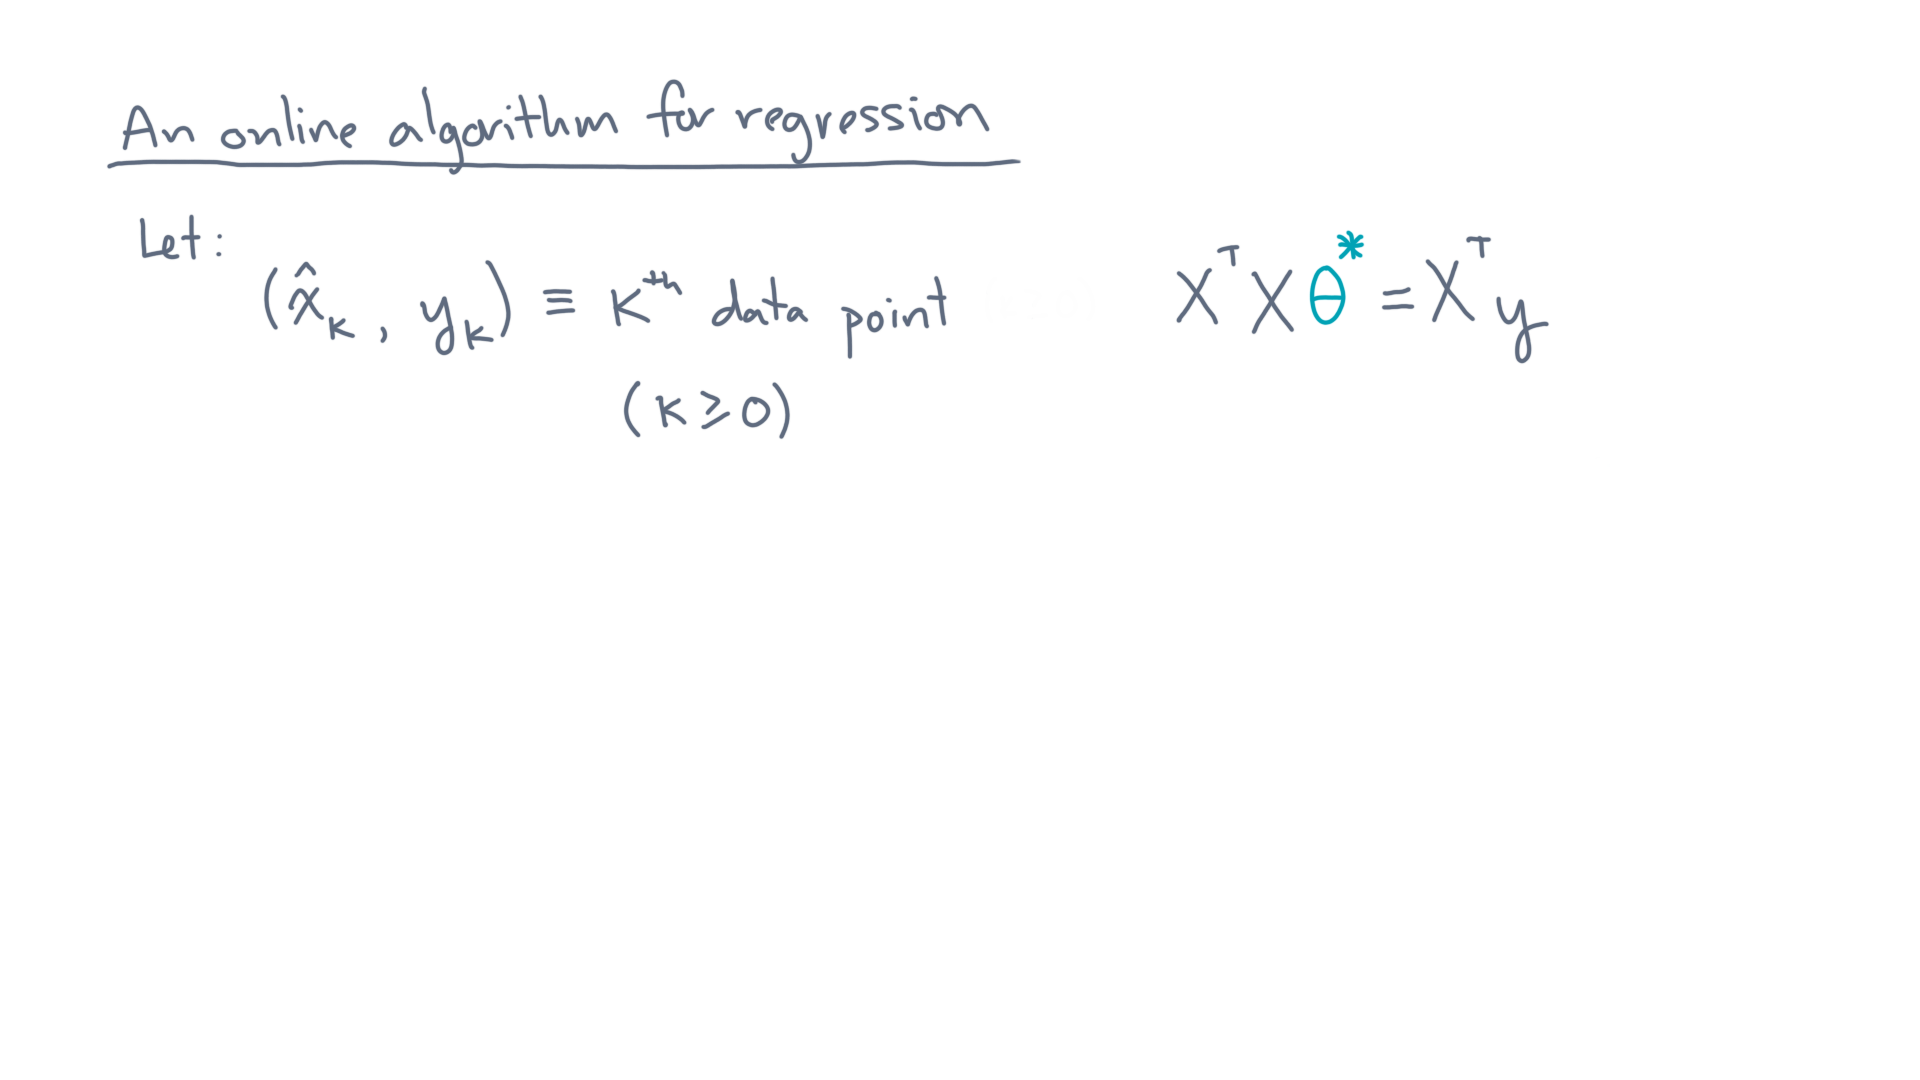 An online algorithm for regression
Let:
(x̂ₖ, yₖ) ≡ kᵗʰ data point
(k ≥ 0)
XᵀXθ* = Xᵀy